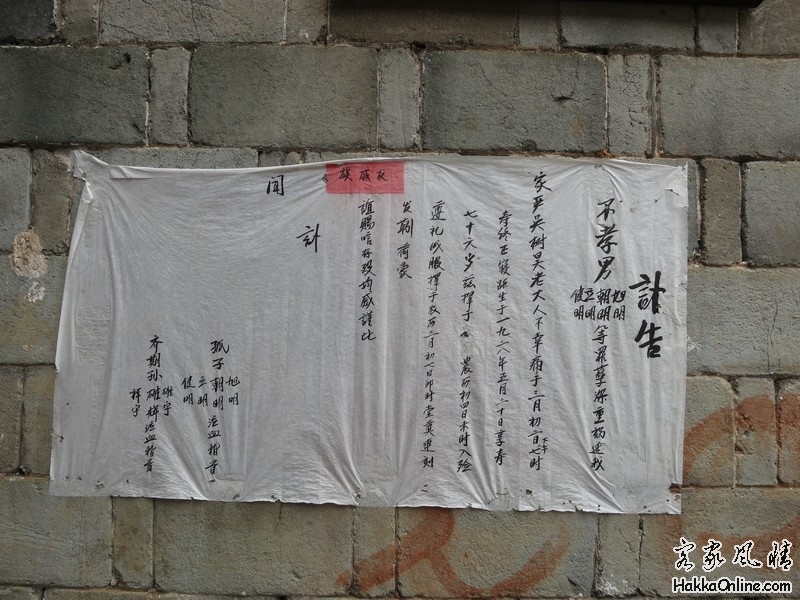 訃告
不孝男旭明朝明立明健明等罪孽深重祸延我
家严吴树昊老大人不幸痛于三月初二日下午七时
寿终正寝距生于一九二八年五月二十日享寿
七十六岁兹择于 农历初四日未时入殓
遵礼成服择于农历三月初七日卯时堂奠逢刻
发靷 荷蒙
族戚友
谊赐唁存殁均感谨此
讣
闻
孤子旭明朝明立明健明泣血稽首
齐期孙 泣血稽首
客家风情
HakkaOnline.com